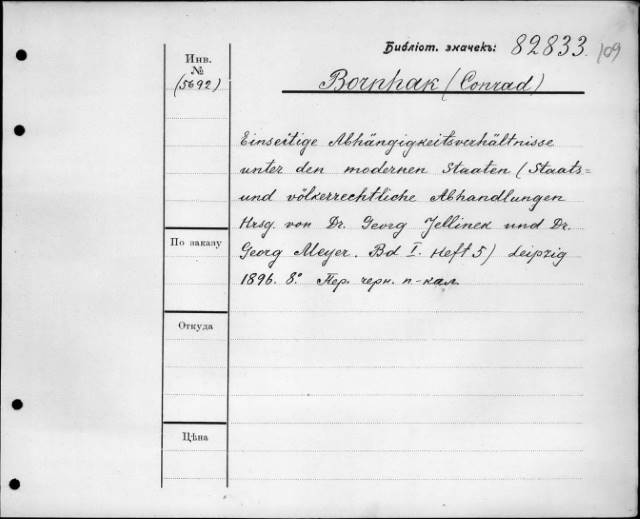 Библіот. значекъ: 82833. 109
Инв.
№
(5692)
Bornhak (Conrad)
Einseitige Abhängigkeitsverhältnisse
unter den modernen Staaten (Staats=
und völkerrechtliche Abhandlungen
Hrsg. von Dr. Georg Jellinek und Dr.
Georg Meyer. Bd I. Heft 5) Leipzig
1896. 8º. Пер. черн. п-кал.
По заказу
Откуда
Цѣна